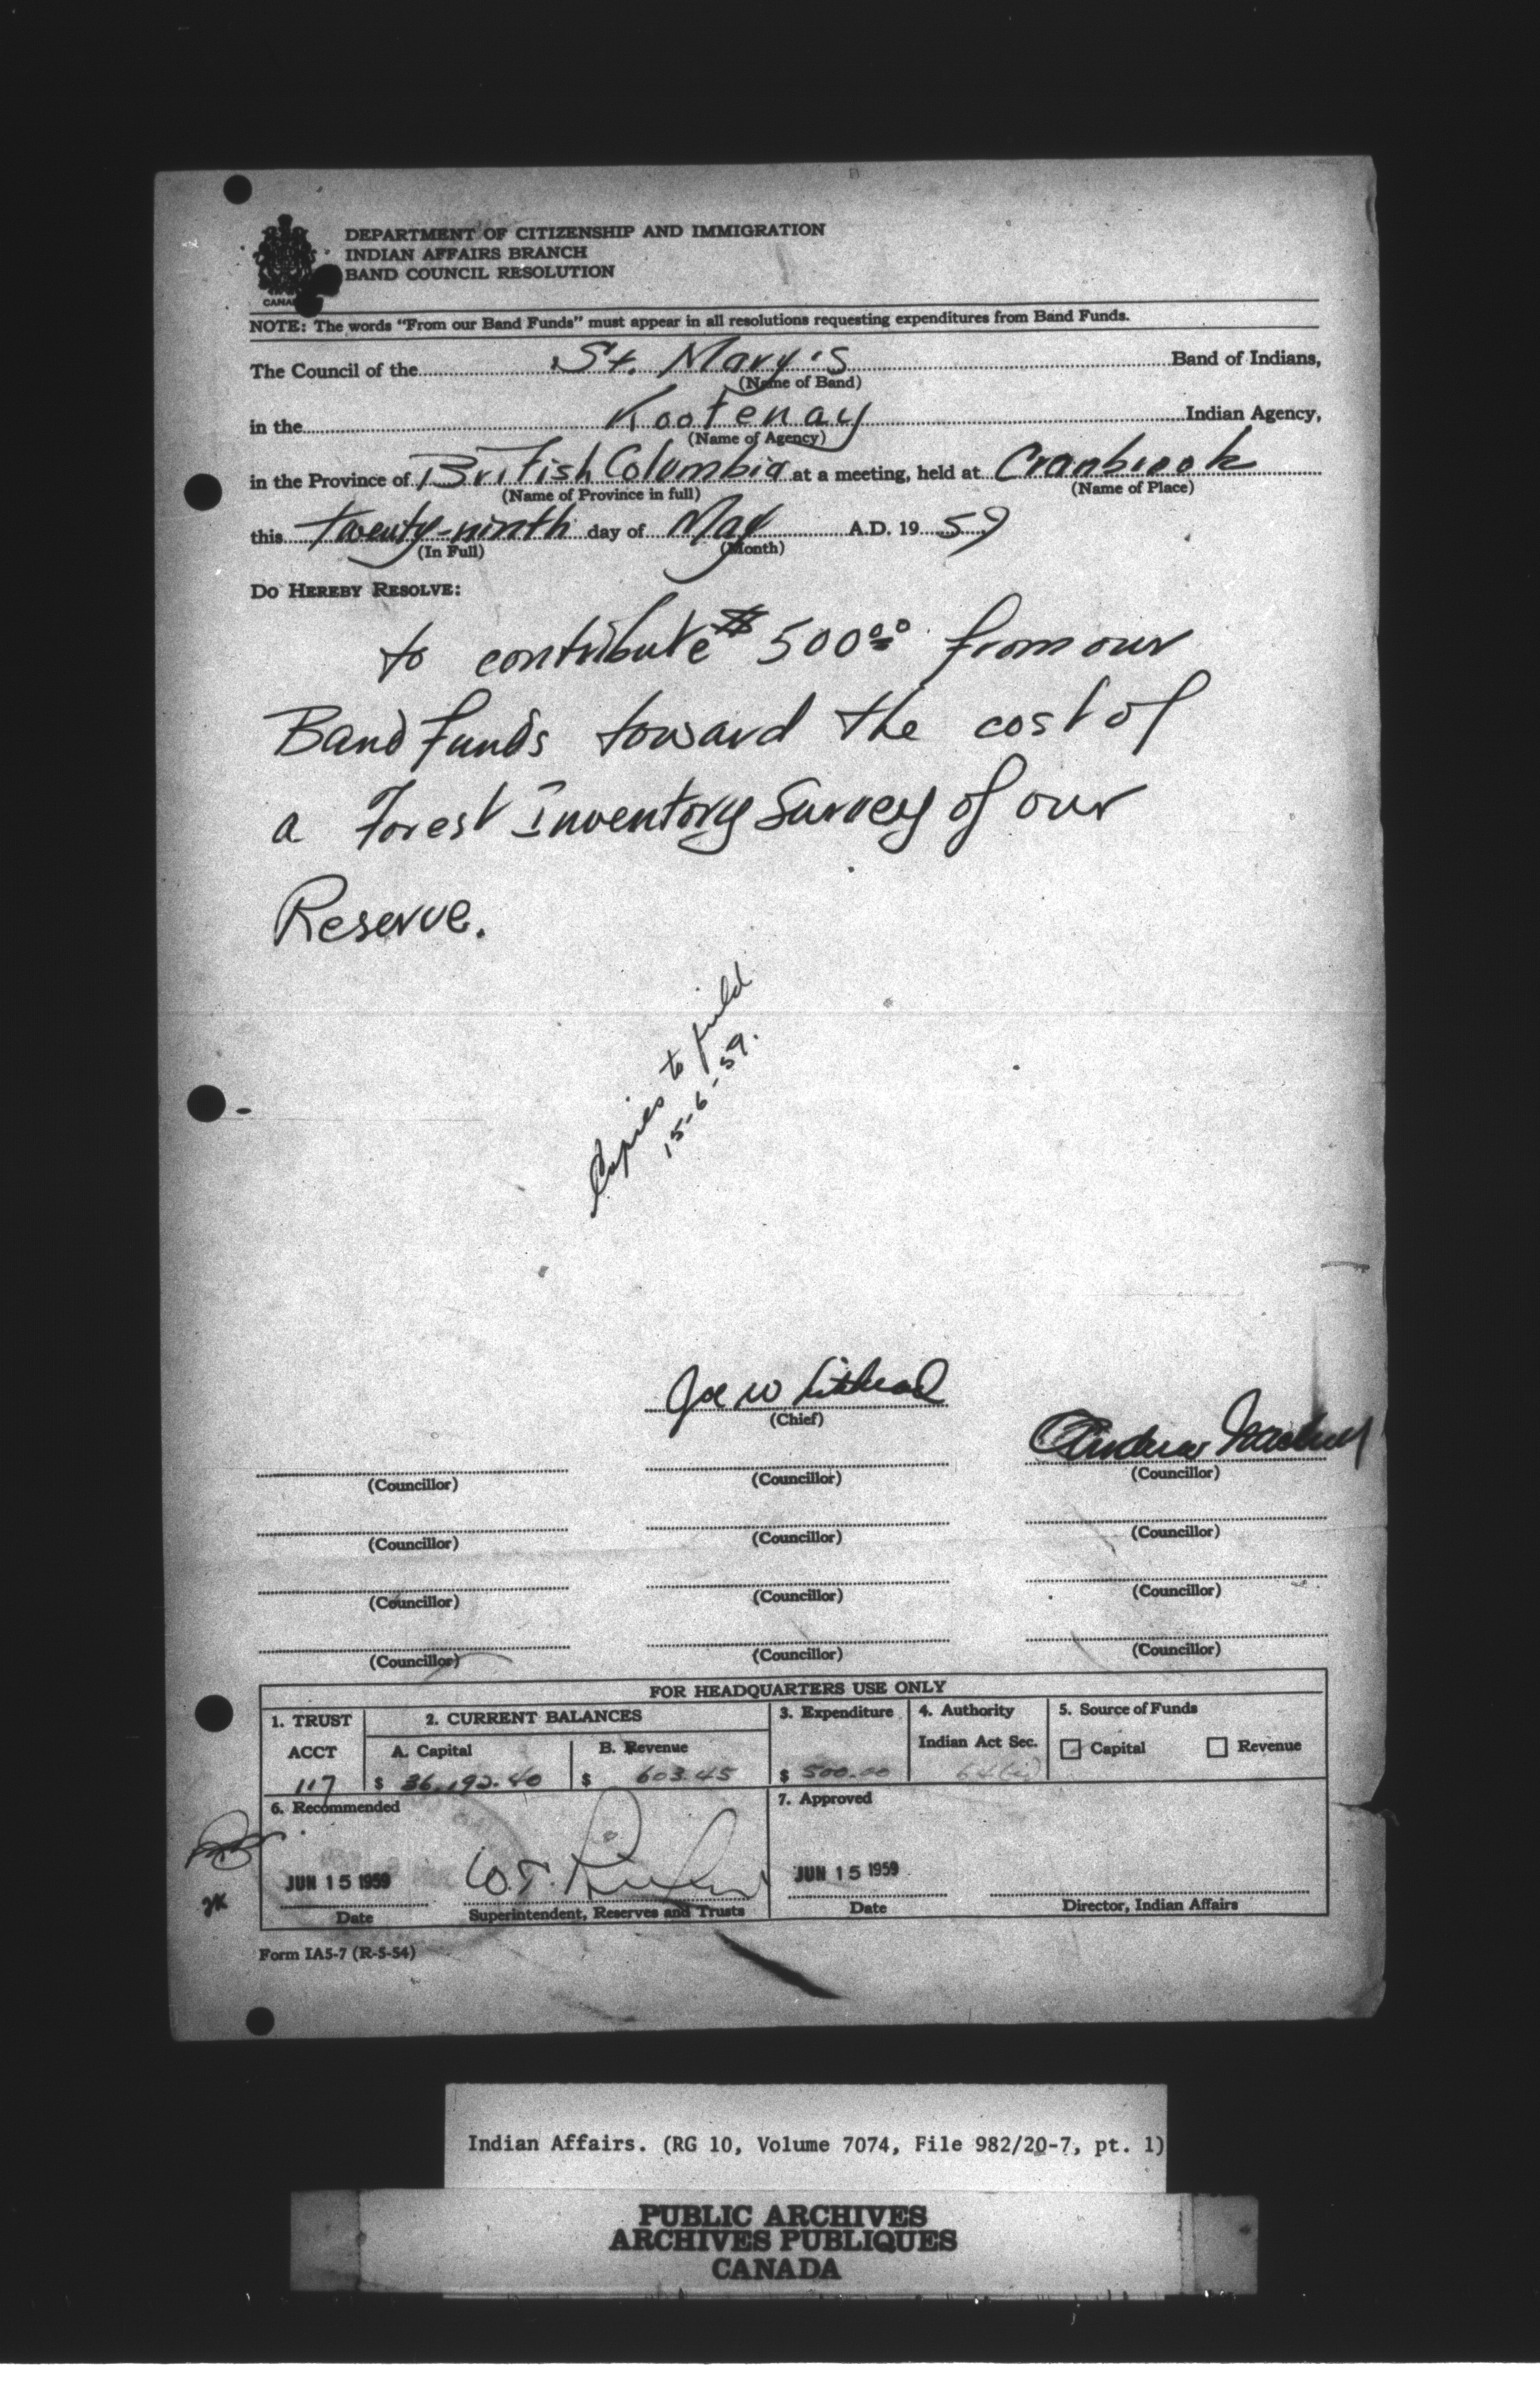 DEPARTMENT OF CITIZENSHIP AND IMMIGRATION
INDIAN AFFAIRS BRANCH
BAND COUNCIL RESOLUTION
NOTE: The words "From our Band Funds" must appear in all resolutions requesting expenditures from Band Funds.
The Council of the St. Mary's Band of Indians,
(Name of Band)
in the Kootenay Indian Agency,
(Name of Agency)
in the Province of British Columbia at a meeting, held at Cranbrook
(Name of Province in full) (Name of Place)
this twenty-ninth day of May A.D. 19 59
(In Full) (Month)
DO HEREBY RESOLVE:
to contribute $500.00 from our
Band funds toward the cost of
a Forest Inventory Survey of our
Reserve.
Copies to field
15-6-59.
Joe W
(Chief)
Andrew
(Councillor) (Councillor) (Councillor)
(Councillor) (Councillor) (Councillor)
(Councillor) (Councillor) (Councillor)
(Councillor) (Councillor) (Councillor)
FOR HEADQUARTERS USE ONLY
1. TRUST 2. CURRENT BALANCES 3. Expenditure 4. Authority 5. Source of Funds
ACCT A. Capital B. Revenue Indian Act Sec. Capital Revenue
117 $ 36,192.40 $ 603.45 $ 500.00
6. Recommended 7. Approved
JUN 15 1959 W.T. JUN 15 1959
Date Superintendent, Reserves and Trusts Date Director, Indian Affairs
Form IA5-7 (R-5-54)
Indian Affairs. (RG 10, Volume 7074, File 982/20-7, pt. 1)
PUBLIC ARCHIVES
ARCHIVES PUBLIQUES
CANADA